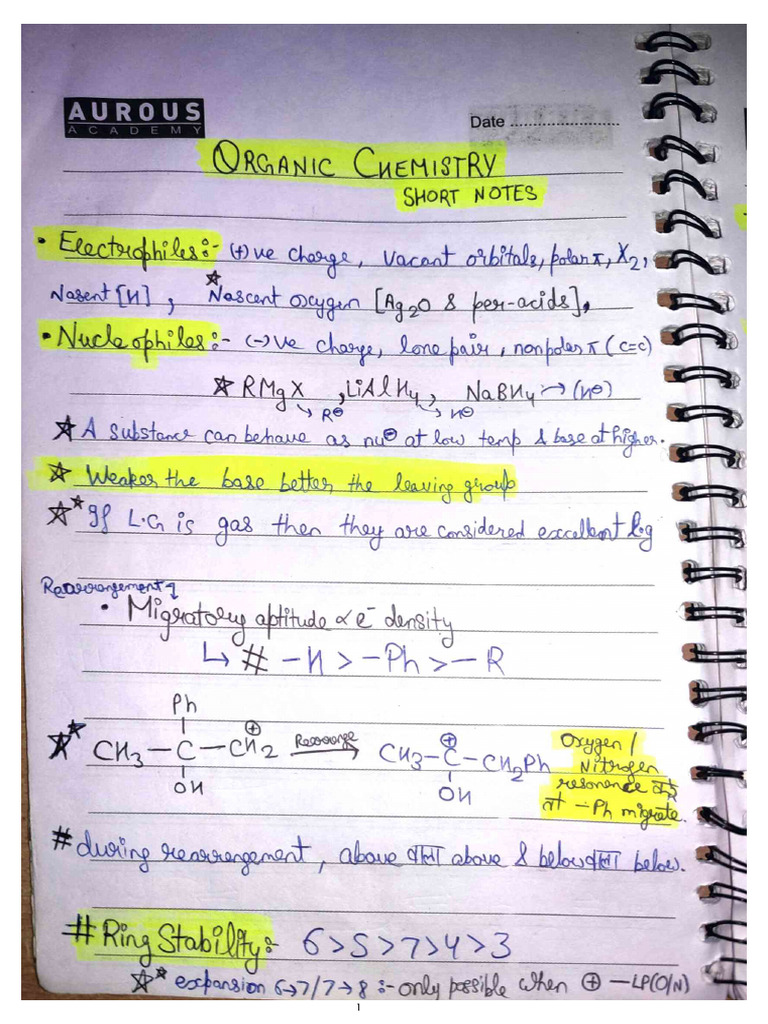 AUROUS
ACADEMY
Date ........................
ORGANIC CHEMISTRY
SHORT NOTES
• Electrophiles:- (+)ve charge, vacant orbitals, polar π, X₂,
Nasent [H], ☆ Nascent oxygen [Ag₂O & per-acids],
• Nucleophiles:- (-)ve charge, lone pair, nonpolar π (C=C)
☆ RMgX, LiAlH₄, NaBH₄ → (H⊖)
↳ R⊖ ↳ H⊖
☆ A substance can behave as nu⊖ at low temp & base at higher.
☆ Weaker the base better the leaving group
☆* If L.G is gas then they are considered excellent l.g
Rearrangement ↴
• Migratory aptitude ∝ e⁻ density
↳ # -H > -Ph > -R
Ph
☆* CH₃-C-CH₂ ⊕ Rearrange → CH₃-C⊕-CH₂Ph
OH OH
Oxygen /
Nitrogen
resonence करे
तो -Ph migrate.
# during rearrangement, above वाला above & below वाला below.
# Ring Stability:- 6>5>7>4>3
☆* expansion 6→7/7→8 :- only possible when ⊕ -LP(O/N)
1